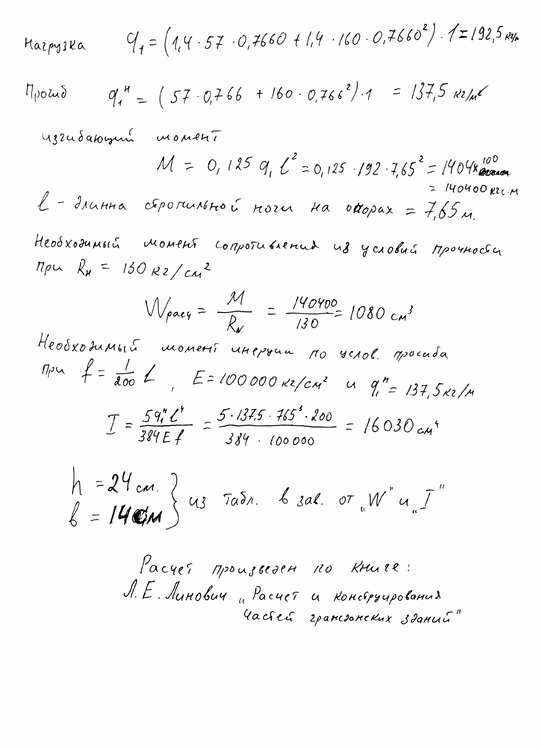 Нагрузка q₁ = (1,4 · 57 · 0,7660 + 1,4 · 160 · 0,7660²) · 1 = 192,5 кг/м
Прогиб q₁ᴴ = (57 · 0,766 + 160 · 0,766²) · 1 = 137,5 кг/м
изгибающий момент
M = 0,125 q₁ l² = 0,125 · 192 · 7,65² = 1404 × 100
= 140400 кгс·м
l - длинна стропильной ноги на опорах = 7,65 м.
Необходимый момент сопротивления из условий прочности
при Rн = 130 кг/см²
Wрасч = M / Rн = 140400 / 130 = 1080 см³
Необходимый момент инерции по услов. просиба
при f = 1/200 L, E = 100000 кг/см² и q₁ᴴ = 137,5 кг/м
I = 5q₁ᴴl⁴ / 384Ef = 5 · 137.5 · 765³ · 200 / 384 · 100000 = 16030 см⁴
h = 24 см.
b = 14 см } из табл. в зав. от „W" и „I"
Расчет произведен по книге:
Л.Е. Линович „Расчет и конструирования
частей гражданских зданий"